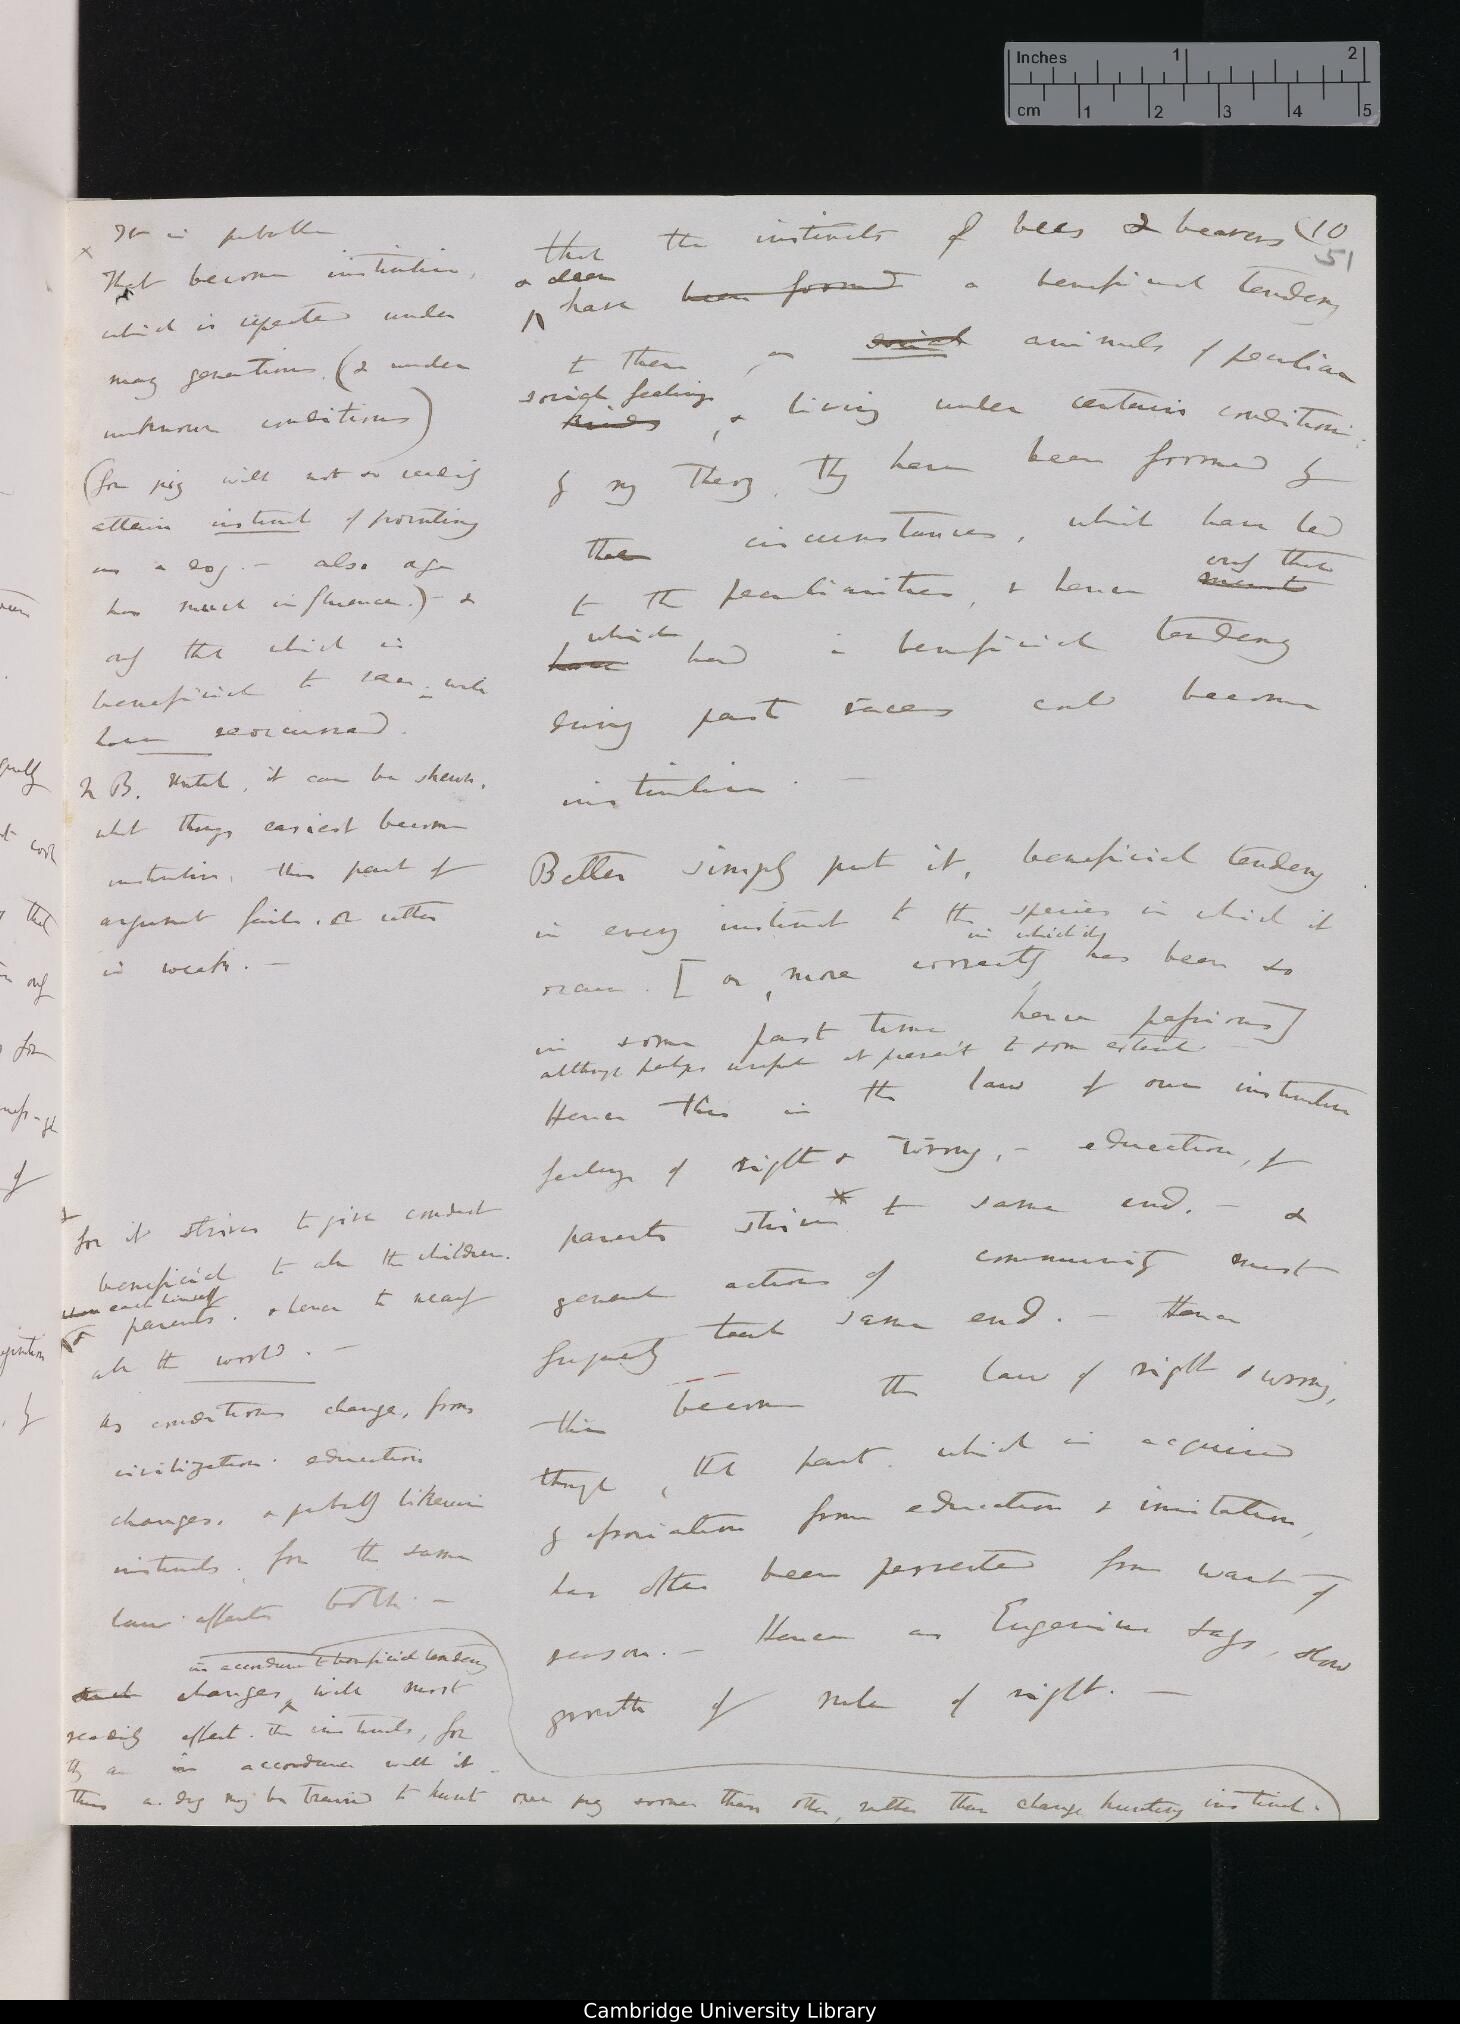 Inches 1 2
cm 1 2 3 4 5
It is probable
x That become instinctive,
which is repeated under
many generations (& under
unknown conditions)
(for pig will not so readily
attain instinct of pointing
as a dog. — also age
has much influence.) — &
only that which is
beneficial to race, will
have reoccurred.
N B. Until, it can be shewn,
what things easiest become
instinctive, this part of
argument fails, or rather
is weak. —
x for it strives to give conduct
beneficial to all the children.
& each himself
& parents. & hence to nearly
all the world. —
As conditions change, from
civilization. education
changes. & probably likewise
instincts. for the same
law affects both. —
in accordance to beneficial tendency
such changes, will most
readily affect. the instincts, for
they are in accordance with it.
thus a. dog may be trained to hunt one pig sooner than other, rather than change hunting instinct.
that the instincts of bees & beavers (10
51
& deer
have been formed a beneficial tendency
to them, as social animals of peculiar
social feelings
kinds, & living under certain conditions:
by my theory, they have been formed by
the circumstances, which have led
only those
to the peculiarities, & hence meant
which
have had a beneficial tendency
during past races could become
instinctive. —
Better simply put it, beneficial tendency
in every instinct to the species in which it
in which it
occurs. [or, more correctly, has been so
in some past time hence passions]
although perhaps useful at present to some extent —
Hence this is the law of our instinctive
feelings of right & wrong, — education, of
parents strives * to same end. — &
general actions of community must
frequently tend same end. — Hence
this becomes the law of right & wrong,
though, the part. which is acquired
by association from education & imitation,
has often been perverted from want of
reason. — Hence as Eugenius says, slow
growth of rule of right. —
Cambridge University Library